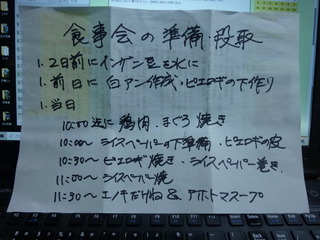 食事会の準備段取
1. 2日前にインゲン豆を水に
1. 前日に白アン作成・ピエロギの下作り
1. 当日
10:00迄に鶏肉・まぐろ焼き
10:00〜ライスペーパーの下準備・ピエロギの皮
10:30〜ピエロギ焼き・ライスペーパー巻き
11:00〜ライスペーパー焼
11:30〜エノキだけね&アホトマスープ